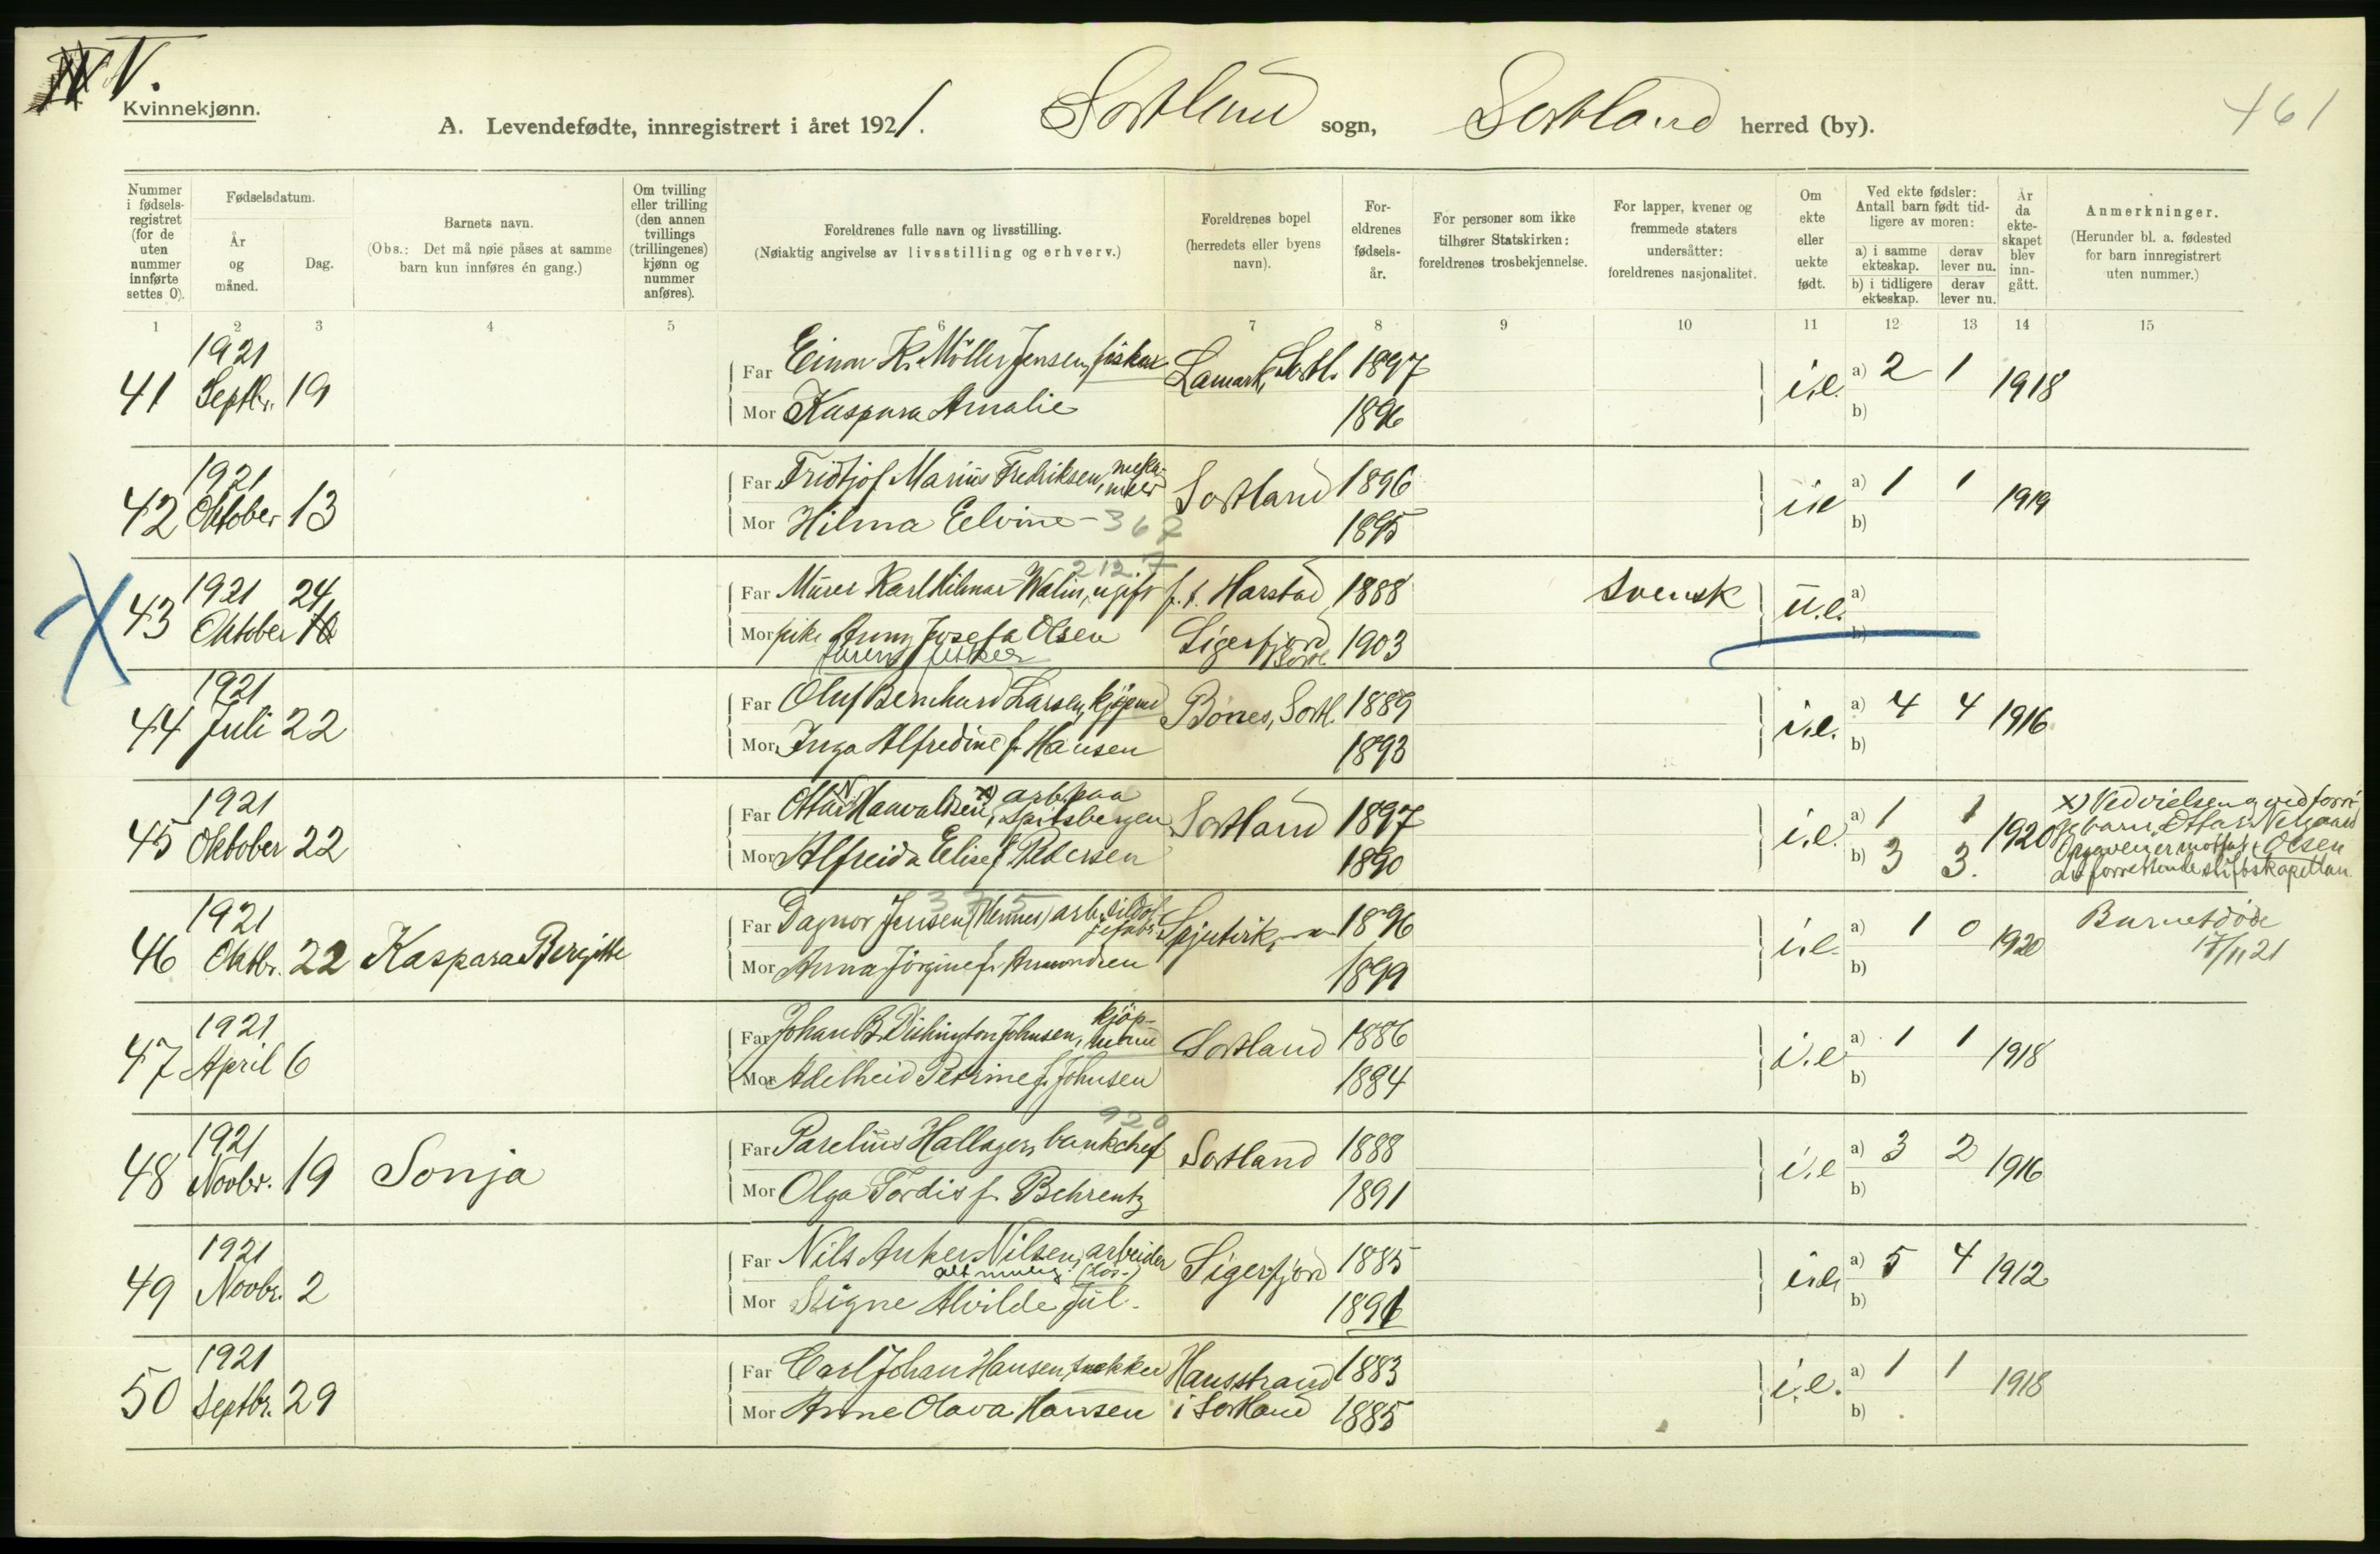 V.
Kvinnekjønn.
A. Levendefødte, innregistrert i året 1921.
Sortland sogn, Sortland herred (by).
461
Nummer i fødsels-registret (for de uten nummer innførte settes 0).
Fødselsdatum.
År og måned.
Dag.
Barnets navn.
(Obs.: Det må nøie påses at samme barn kun innføres én gang.)
Om tvilling eller trilling (den annen tvillings (trillingenes) kjønn og nummer anføres).
Foreldrenes fulle navn og livsstilling.
(Nøiaktig angivelse av livsstilling og erhverv.)
Foreldrenes bopel (herredets eller byens navn).
For-eldrenes fødsels-år.
For personer som ikke tilhører Statskirken: foreldrenes trosbekjennelse.
For lapper, kvener og fremmede staters undersåtter: foreldrenes nasjonalitet.
Om ekte eller uekte født.
Ved ekte fødsler: Antall barn født tid-ligere av moren:
a) i samme ekteskap. derav lever nu.
b) i tidligere ekteskap. derav lever nu.
År da ekte-skapet blev inn-gått.
Anmerkninger.
(Herunder bl. a. fødested for barn innregistrert uten nummer.)
1 2 3 4 5 6 7 8 9 10 11 12 13 14 15
41 1921 Septbr. 19
Far Einar K. Möller Jensen, fisker Lamark, Sortl. 1897 i.e. a) 2 1 1918
Mor Kaspara Amalie 1896 b)
42 1921 Oktober 13
Far Fridtjof Marius Fredriksen, meka-niker Sortland 1896 i.e a) 1 1 1919
Mor Hilma Elvine - 367 1895 b)
212.7
43 1921 Oktober 24
Far Murer Karl Hilmar Walin, ugift f. t. Harstad 1888 Svensk u.e. a)
Mor pike Anny Josefa Olsen Sigerfjord Sortl. 1903 b)
farens fisker
44 1921 Juli 22
Far Oluf Bernhard Larsen, kjöpmd Bönes, Sortl. 1889 i.e. a) 4 4 1916
Mor Inga Alfredine f. Hansen 1893 b)
45 1921 Oktober 22
Far Ottar N. Haavaldsen, x) arb. paa Spitsbergen Sortland 1897 i.e. a) 1 1 1920
Mor Alfreida Elise f. Pedersen 1890 b) 3 3.
x) Ved vielsen og ved forri-
ge barn, Ottar Nilgaard
Opgaven er mottat Olsen
av forrettende stiftskapellan
375
46 1921 Oktbr. 22 Kaspara Bergitte
Far Dagnor Jensen (Hennes) arb. sildol-jefabr. 1896 i.e. a) 1 0 1920 Barnet döde
17/11 21
Mor Anna Jörgine f. Amundsen 1899 b)
47 1921 April 6
Far Johan B. Dishington Johnsen, kjöp-mann Sortland 1886 i.e a) 1 1 1918
Mor Adelheid Petrine f. Johnsen 1884 b)
920
48 1921 Novbr. 19 Sonja
Far Parelius Hallager, bankchef Sortland 1888 i.e a) 3 2 1916
Mor Olga Tordis f. Behrentz 1891 b)
49 1921 Novbr. 2
Far Nils Anker Nilsen, arbeider Sigerfjord 1885 i.e. a) 5 4 1912
alt mulig (lös-)
Mor Signe Alvilde Jul. 1891 b)
50 1921 Septbr. 29
Far Carl Johan Hansen, snekker Hansstrand 1883 i.e. a) 1 1 1918
Mor Anne Olava Hansen i Sortland 1885 b)